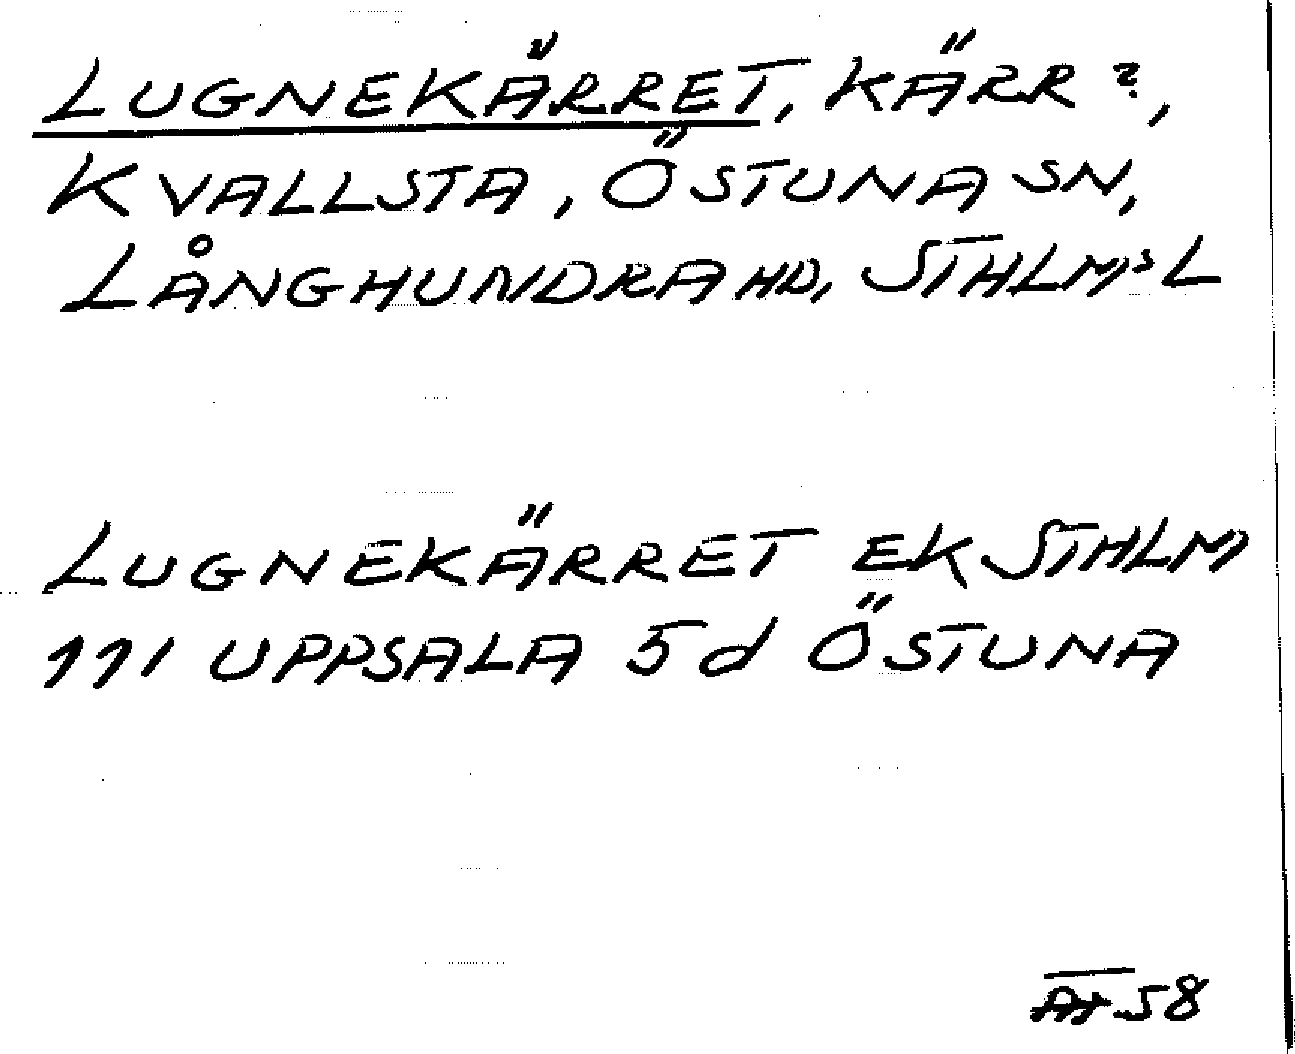 LUGNEKÄRRET, KÄRR?,
KVALLSTA, ÖSTUNA SN,
LÅNGHUNDRA HD, STHLMS L
LUGNEKÄRRET EK STHLM
111 UPPSALA 5d ÖSTUNA
58